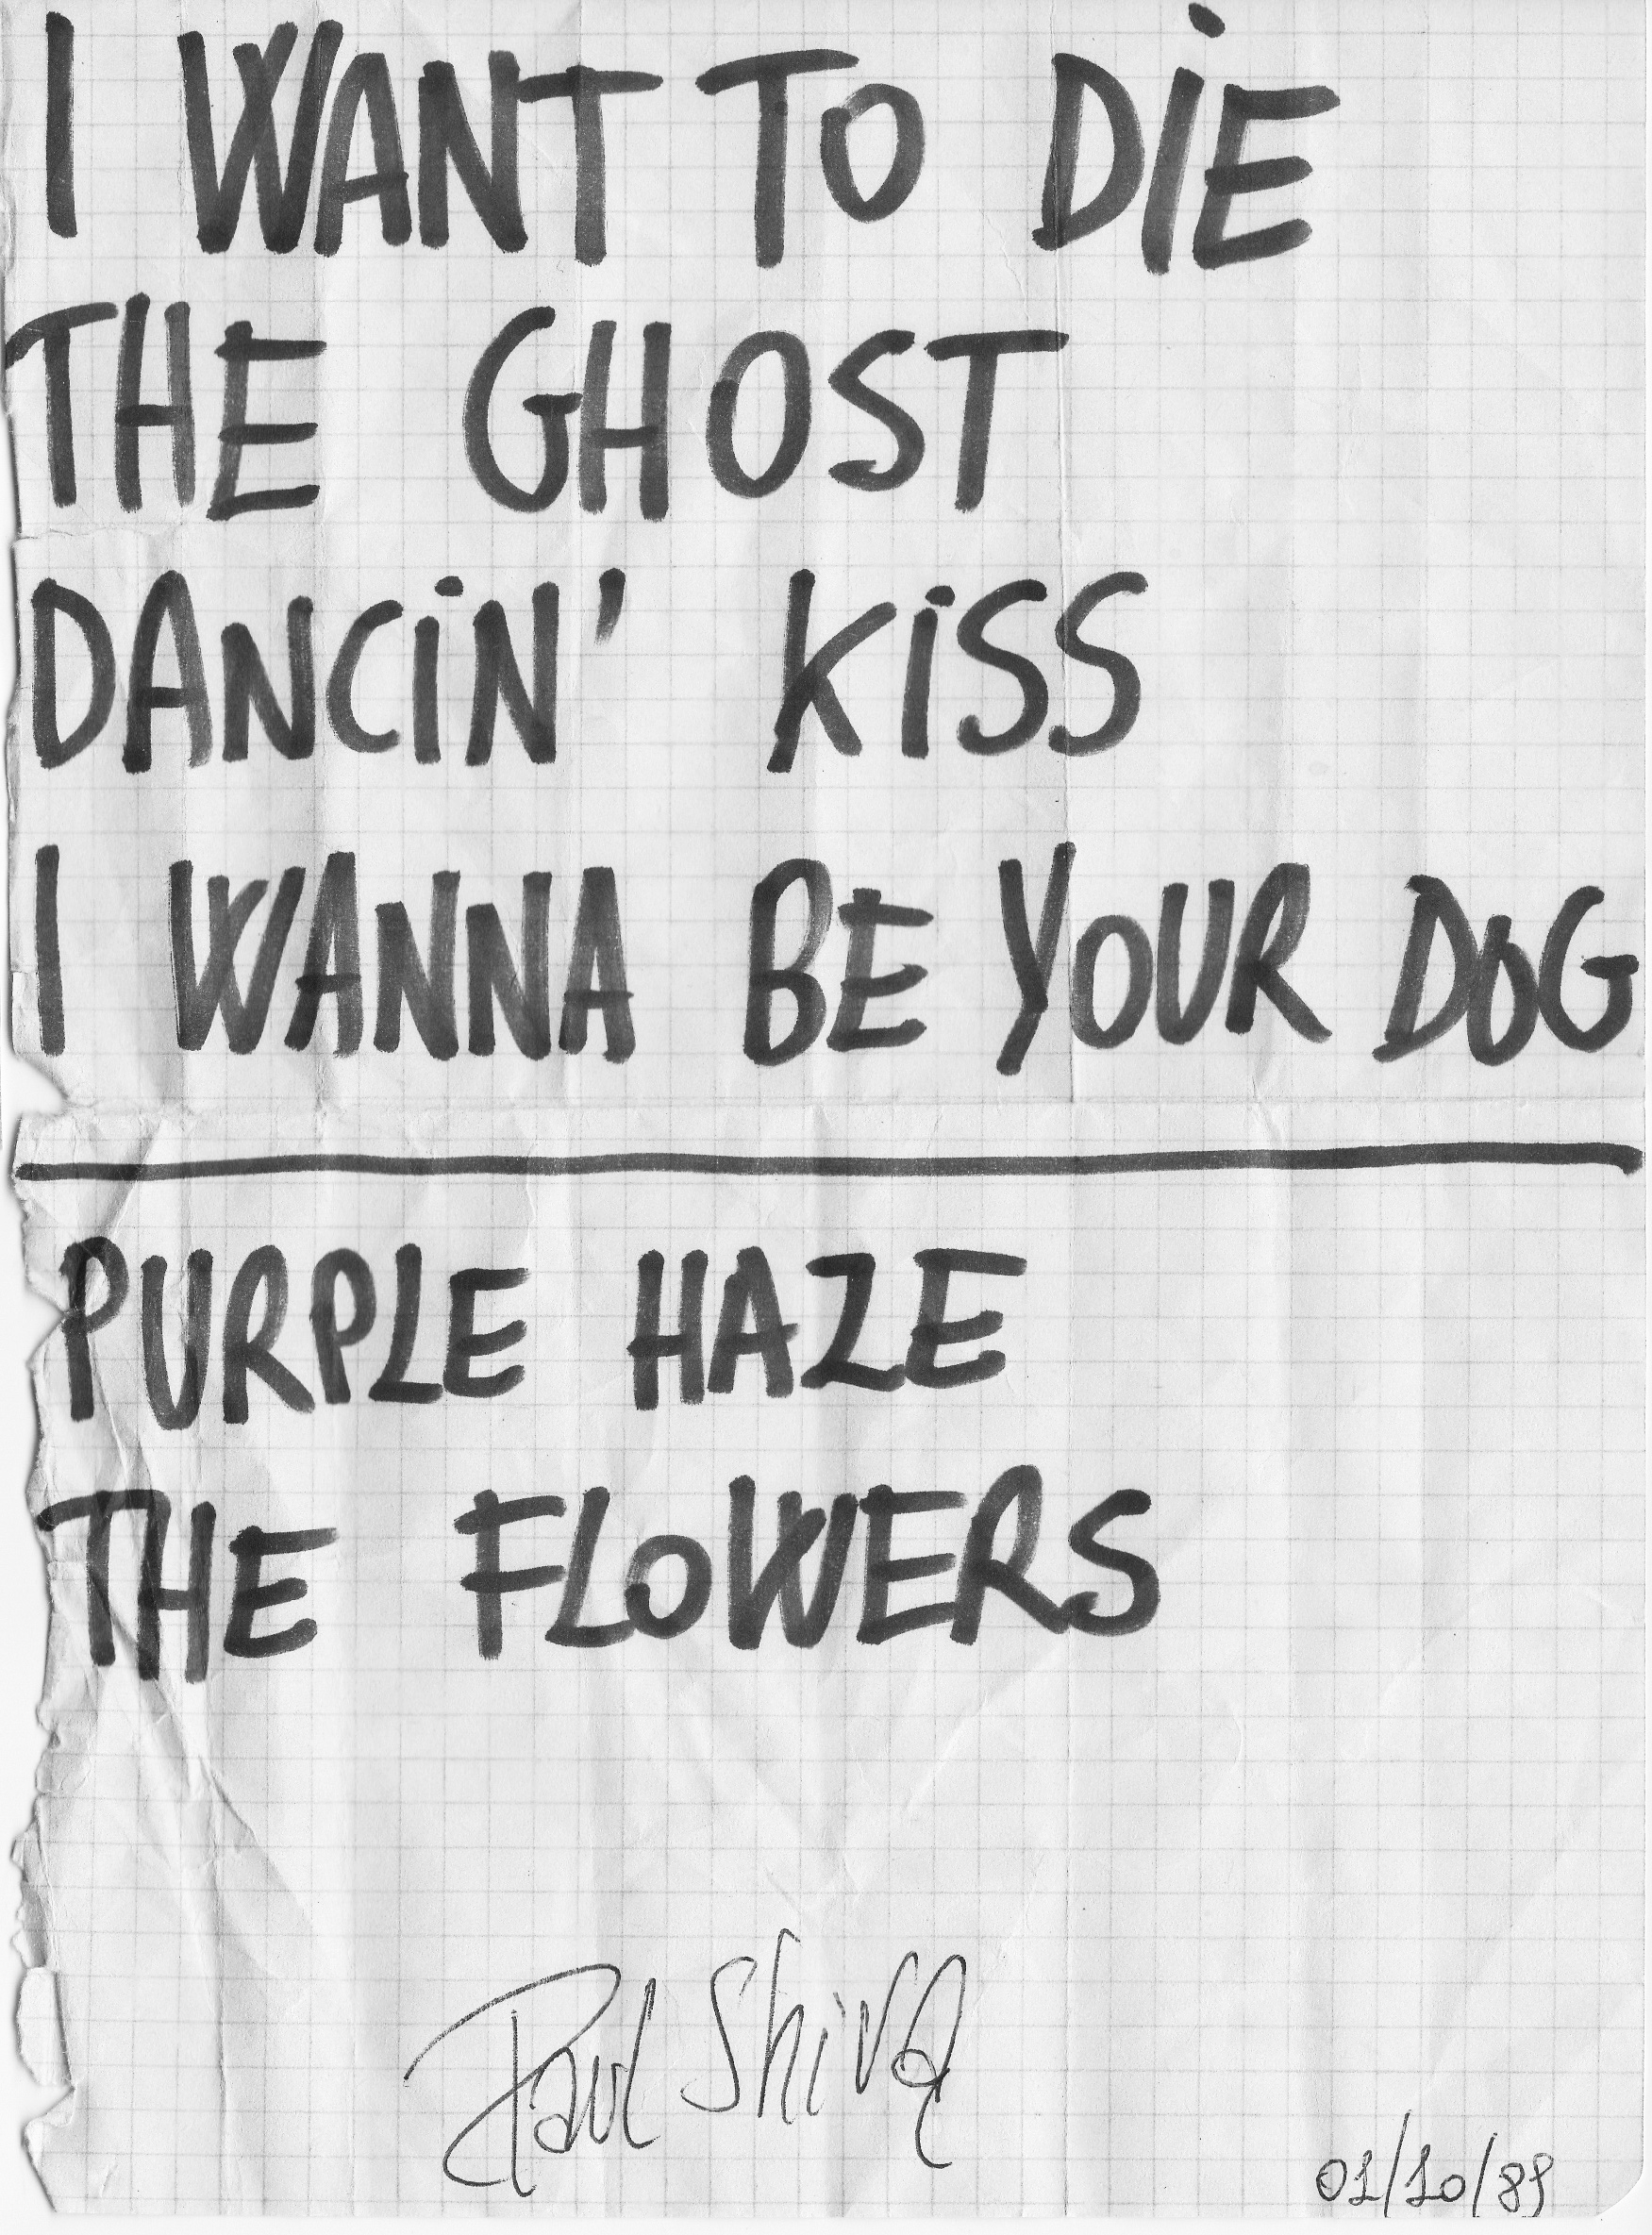 I WANT TO DiE
THE GHOST
DANCiN' KiSS
I WANNA BE YOUR DOG
PURPLE HAZE
THE FLOWERS
Paul Shiva
01/10/89